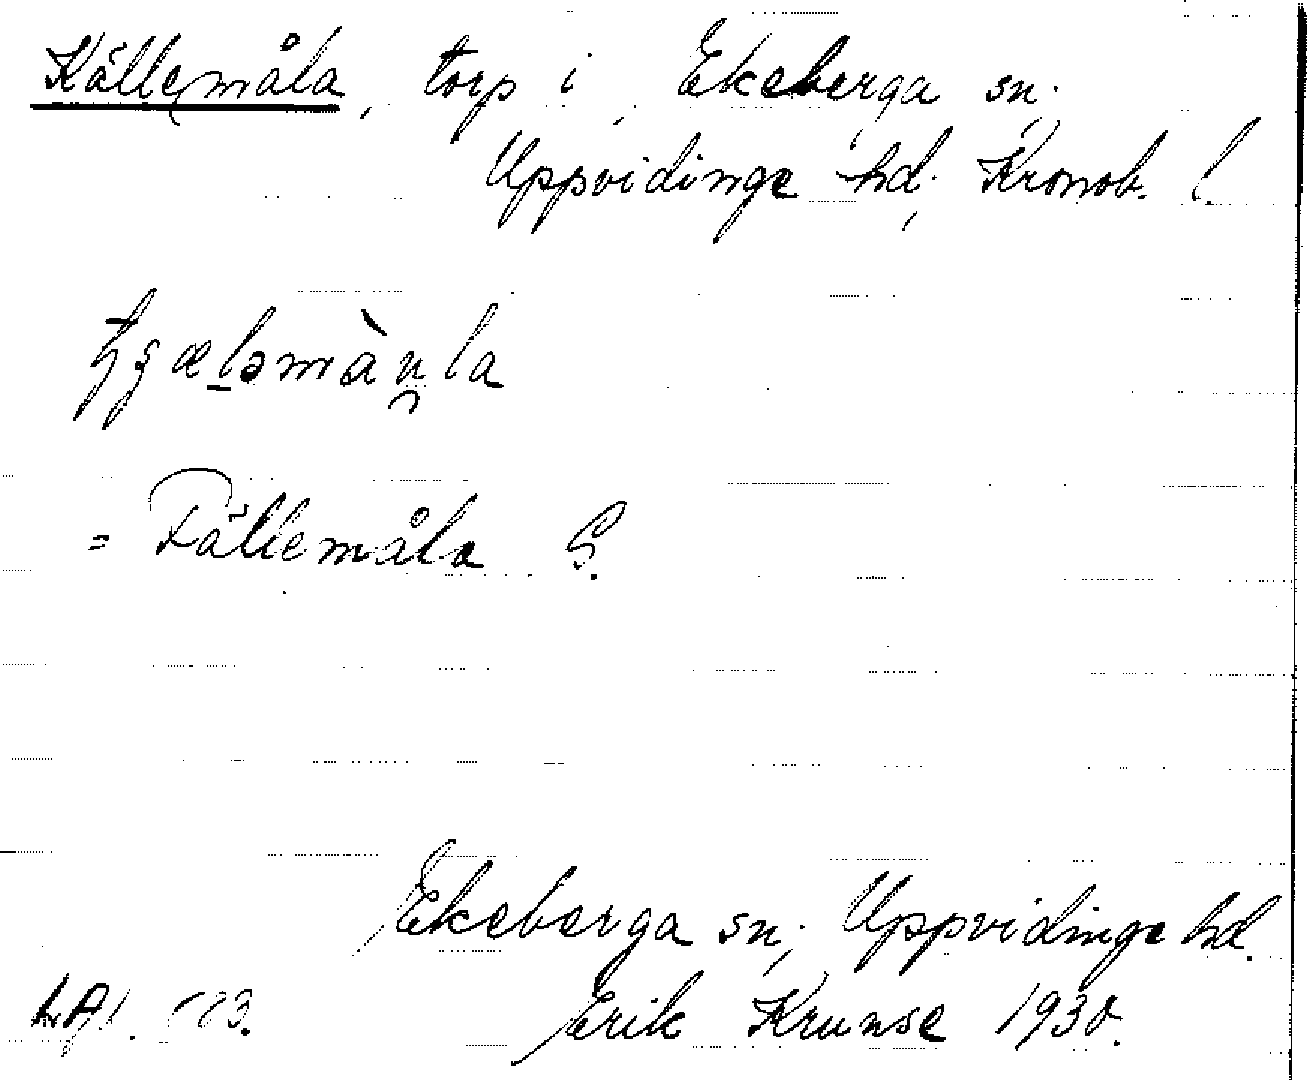 Källemåla, torp i Ekeberga sn.
Uppvidinge hd. Kronob. l.
= Fällemåla S.
Ekeberga sn, Uppvidinge hd.
Erik Krunse 1930.